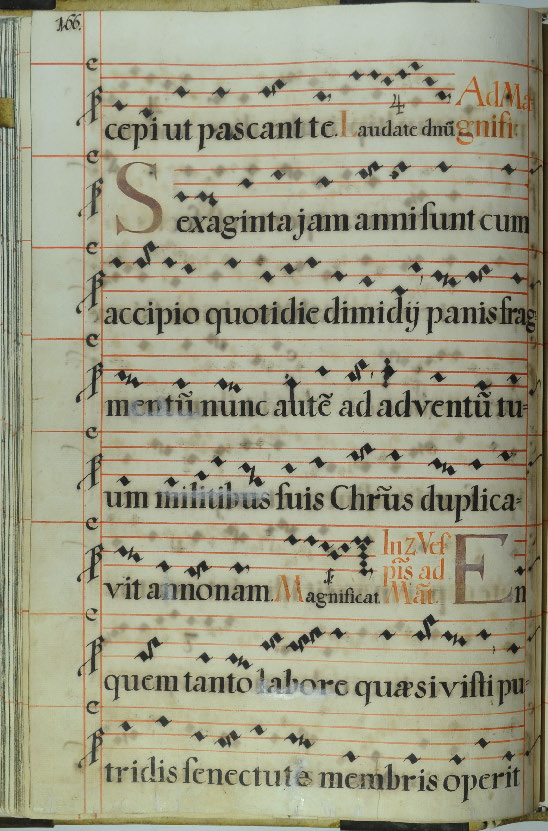 166.
cepi ut pascant te. Laudate dnū 4 Ad Magnifi:
Sexaginta jam anni sunt cum
accipio quotidie dimidÿ panis frag
mentū nunc autē ad adventū tu=
um militibus suis Chr̃us duplica=
vit annonam. Magnificat In 2 Vesp̃is ad Mãt. En
quem tanto labore quæsivisti pu=
tridis senectute membris operit